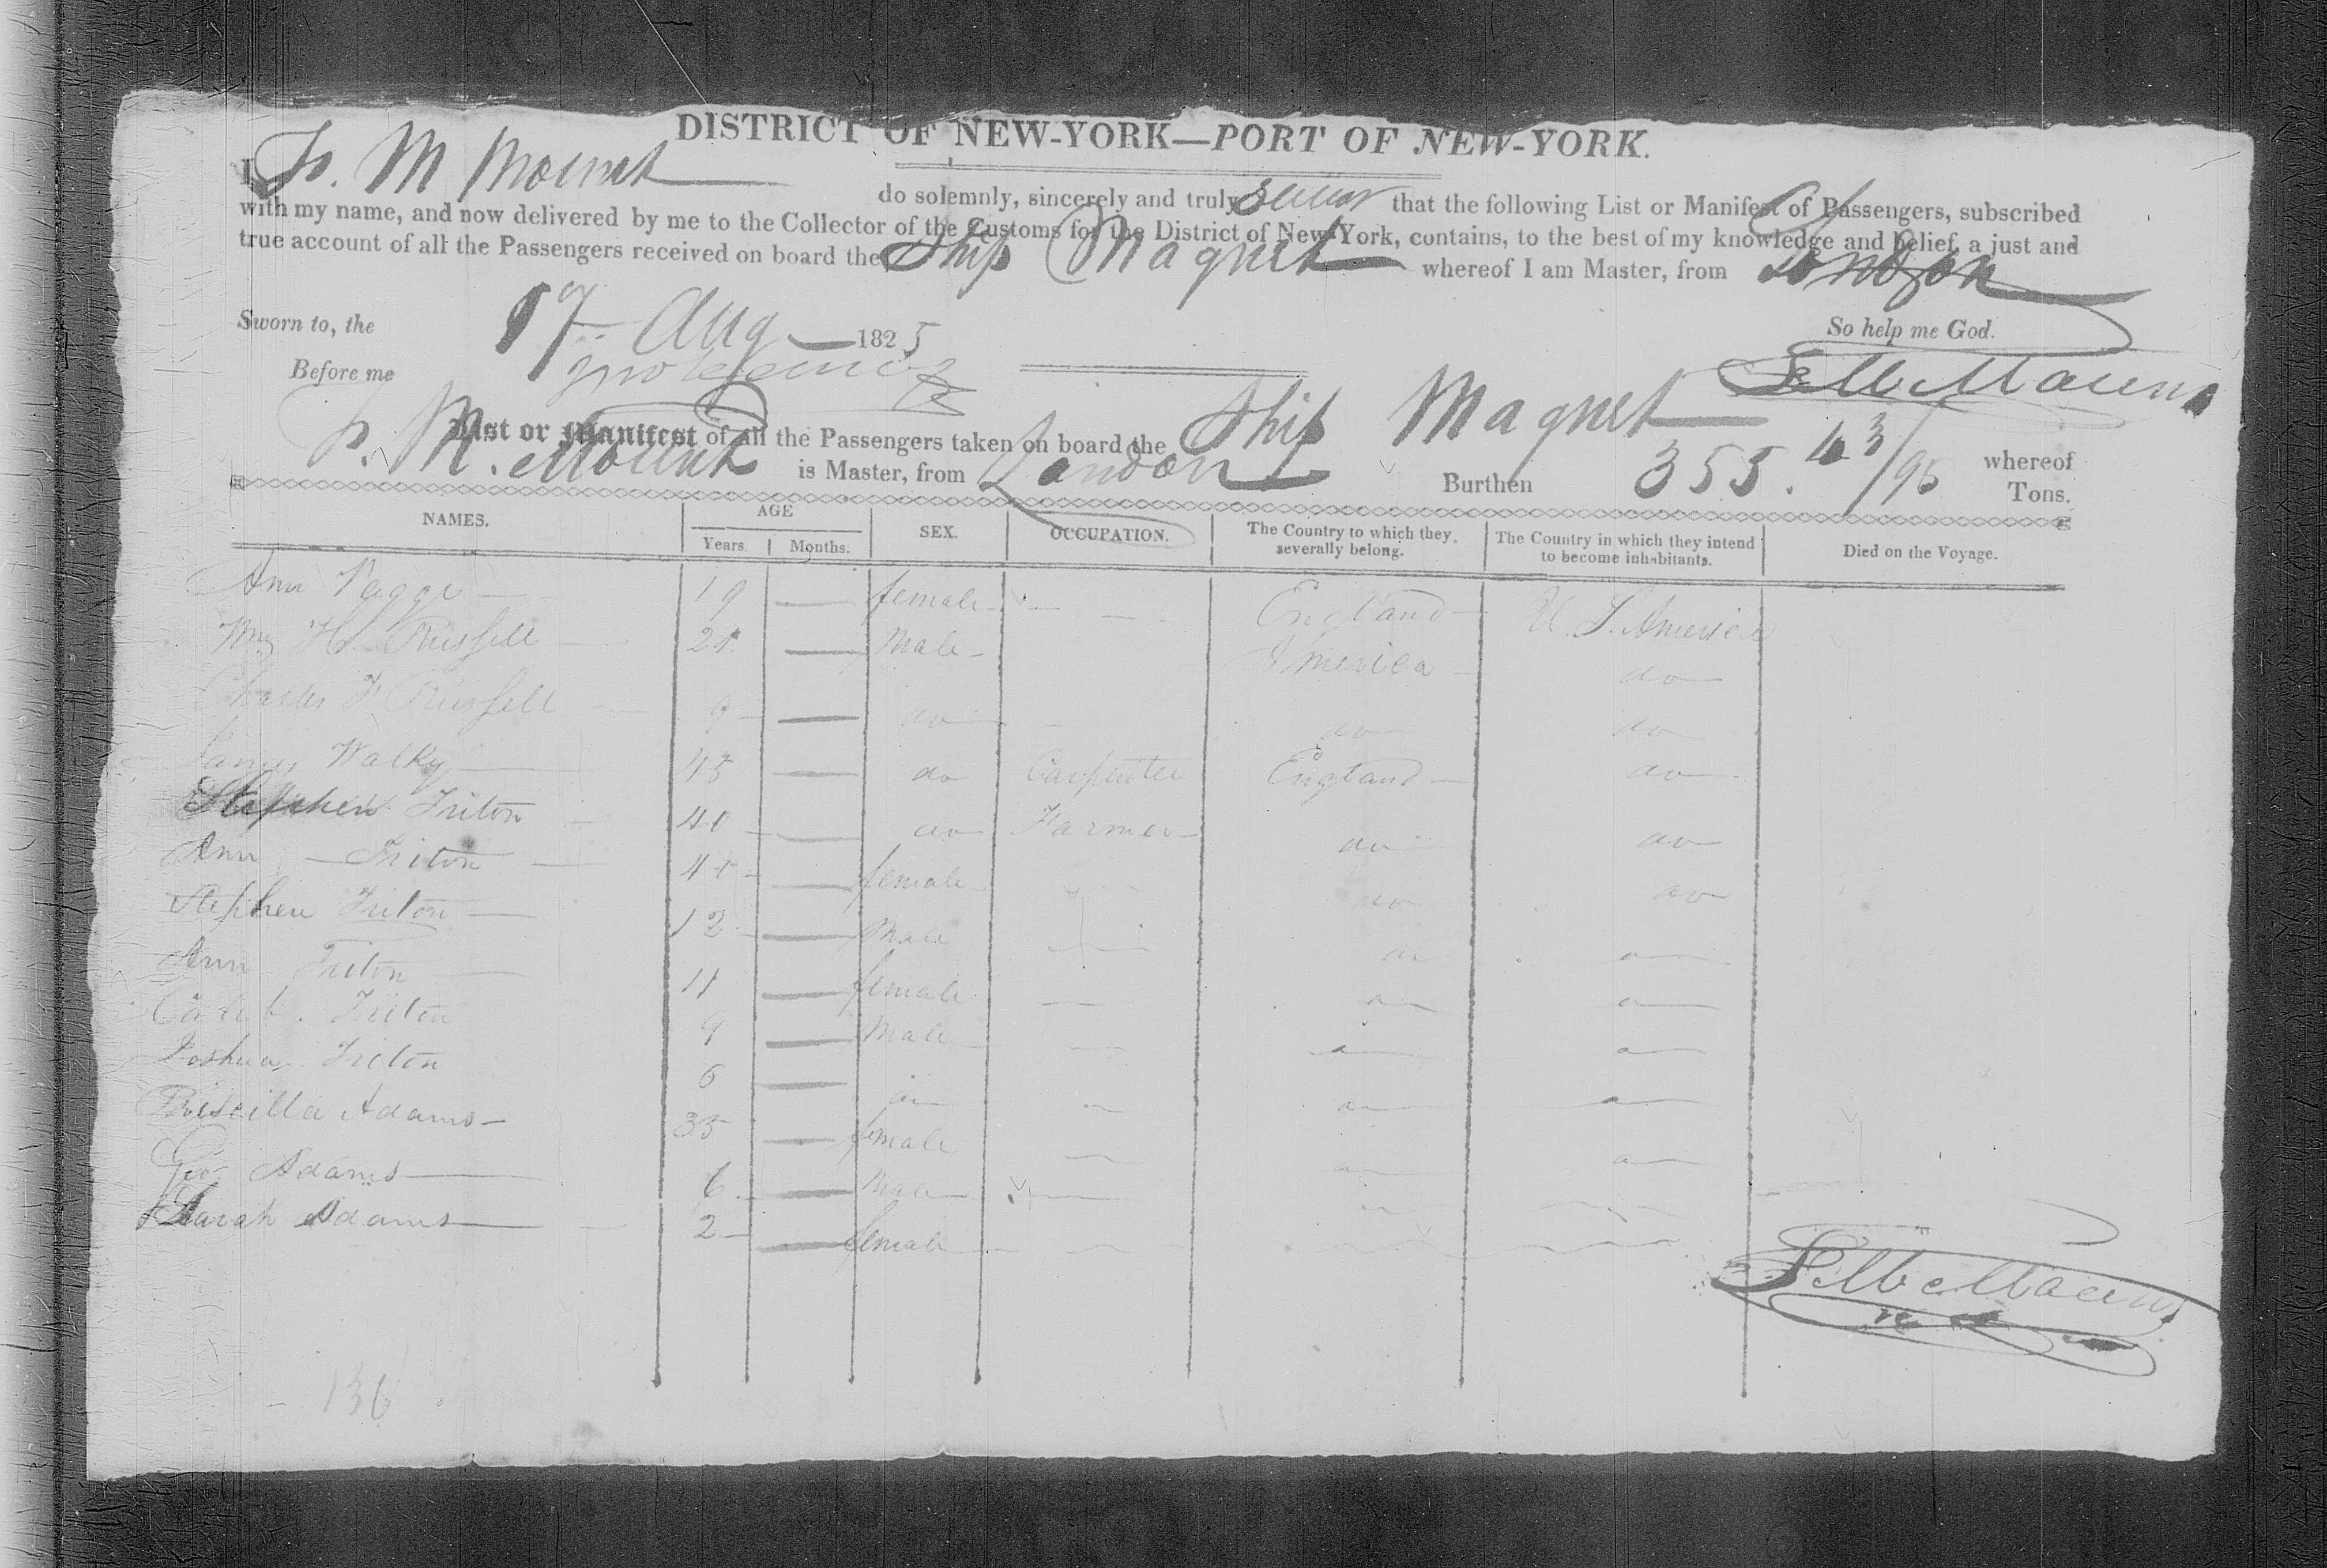 DISTRICT OF NEW-YORK—PORT OF NEW-YORK.
I, M Mount do solemnly, sincerely and truly swear that the following List or Manifest of Passengers, subscribed
with my name, and now delivered by me to the Collector of the Customs for the District of New-York, contains, to the best of my knowledge and belief, a just and
true account of all the Passengers received on board the Ship Magnet whereof I am Master, from London
Sworn to, the 17 Aug 1825 So help me God.
Before me
List or Manifest of all the Passengers taken on board the Ship Magnet whereof
M. Mount is Master, from London Burthen 355. 43/95 Tons.
NAMES. AGE Years. Months. SEX. OCCUPATION. The Country to which they severally belong. The Country in which they intend to become inhabitants. Died on the Voyage.
Ann 19 — female England U. S. America
Wm H. Russell 21 — Male America do
Charles F Russell 9 — do do do
James Walky 45 — do Carpenter England do
Stephen Triton 40 — do Farmer do do
Ann Triton 40 — female do do
Stephen Triton 12 — Male do do
Ann Triton 11 — female do do
Triton 9 — Male do do
Joshua Triton 6 — do do do
Priscilla Adams 35 — female do do
Geo Adams 6 — Male
Sarah Adams 2 — female
136